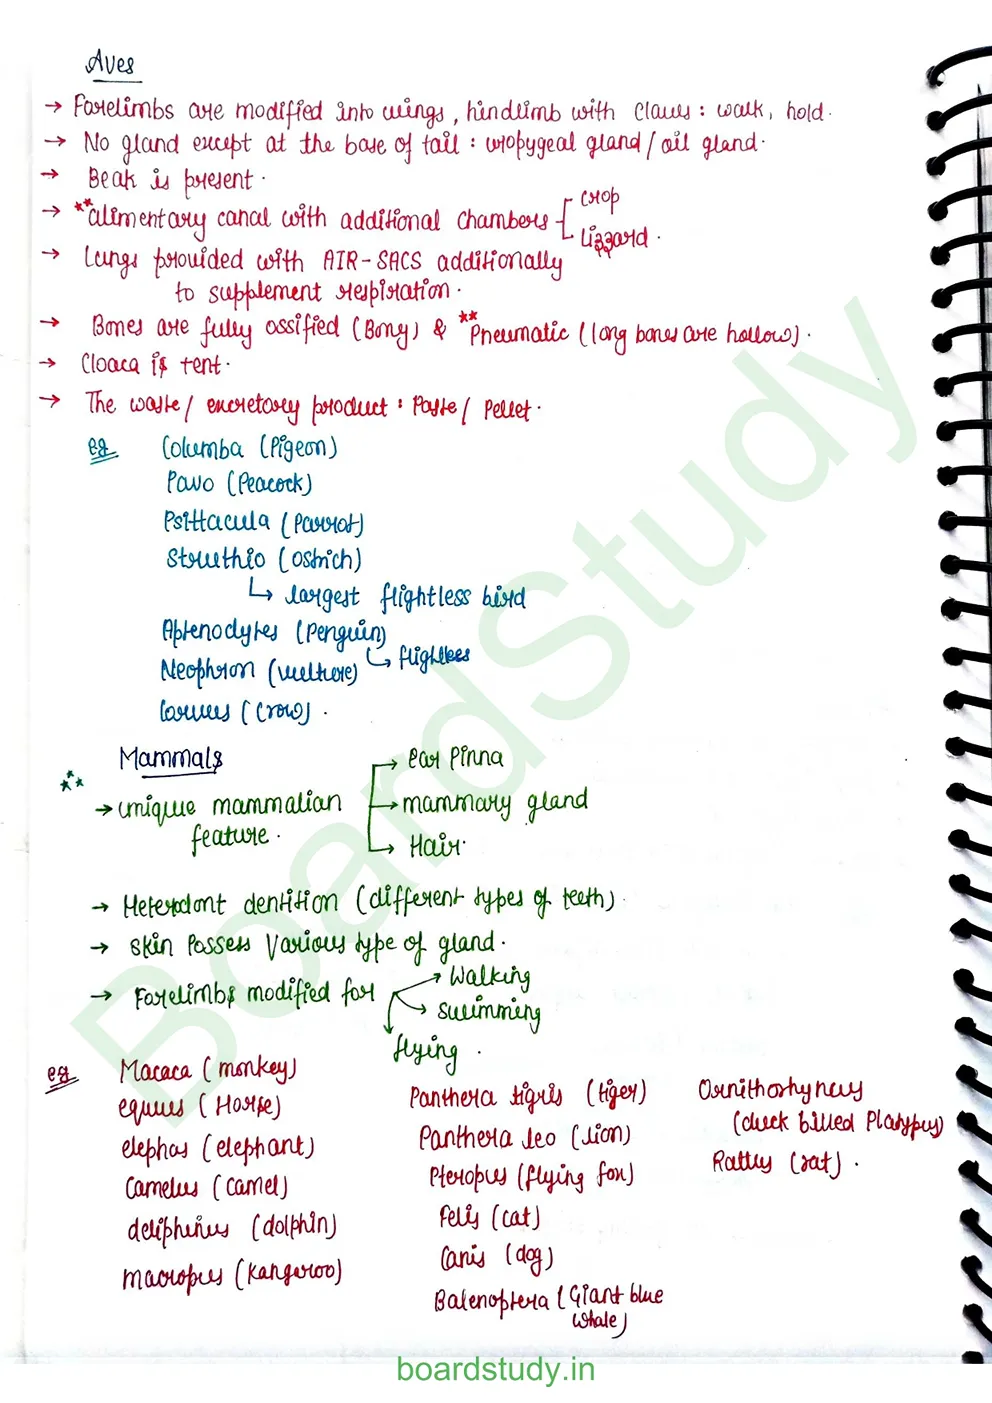 Aves
→ Forelimbs are modified into wings, hindlimb with claws : walk, hold.
→ No gland except at the base of tail : uropygeal gland/oil gland.
→ Beak is present.
→ **alimentary canal with additional chambers crop
lizzard.
→ Lungs provided with AIR-SACS additionally
to supplement respiration.
→ Bones are fully ossified (Bony) & **Pneumatic (long bones are hollow).
→ Cloaca is tent.
→ The waste/ excretory product : Paste/ Pellet.
eg Columba (Pigeon)
Pavo (Peacock)
Psittacula (Parrot)
Struthio (Ostrich)
↳ largest flightless bird
Aptenodytes (Penguin)
↳ flightless
Neophron (vulture)
Corvus (Crow).
Mammals
→ unique mammalian
feature.
→ Ear Pinna
→ mammary gland
→ Hair.
→ Heterodont dentition (different types of teeth).
→ Skin Possess Various type of gland.
→ Forelimbs modified for → Walking
→ Swimming
flying.
eg Macaca (monkey)
equus (Horse)
elephas (elephant)
Camelus (camel)
deliphinus (dolphin)
macropus (Kangaroo)
Panthera tigris (tiger)
Panthera leo (lion)
Pteropus (flying fox)
Felis (cat)
Canis (dog)
Balenoptera (Giant blue
whale)
Ornithorhyncus
(duck billed Platypus)
Rattus (rat).
BoardStudy
boardstudy.in